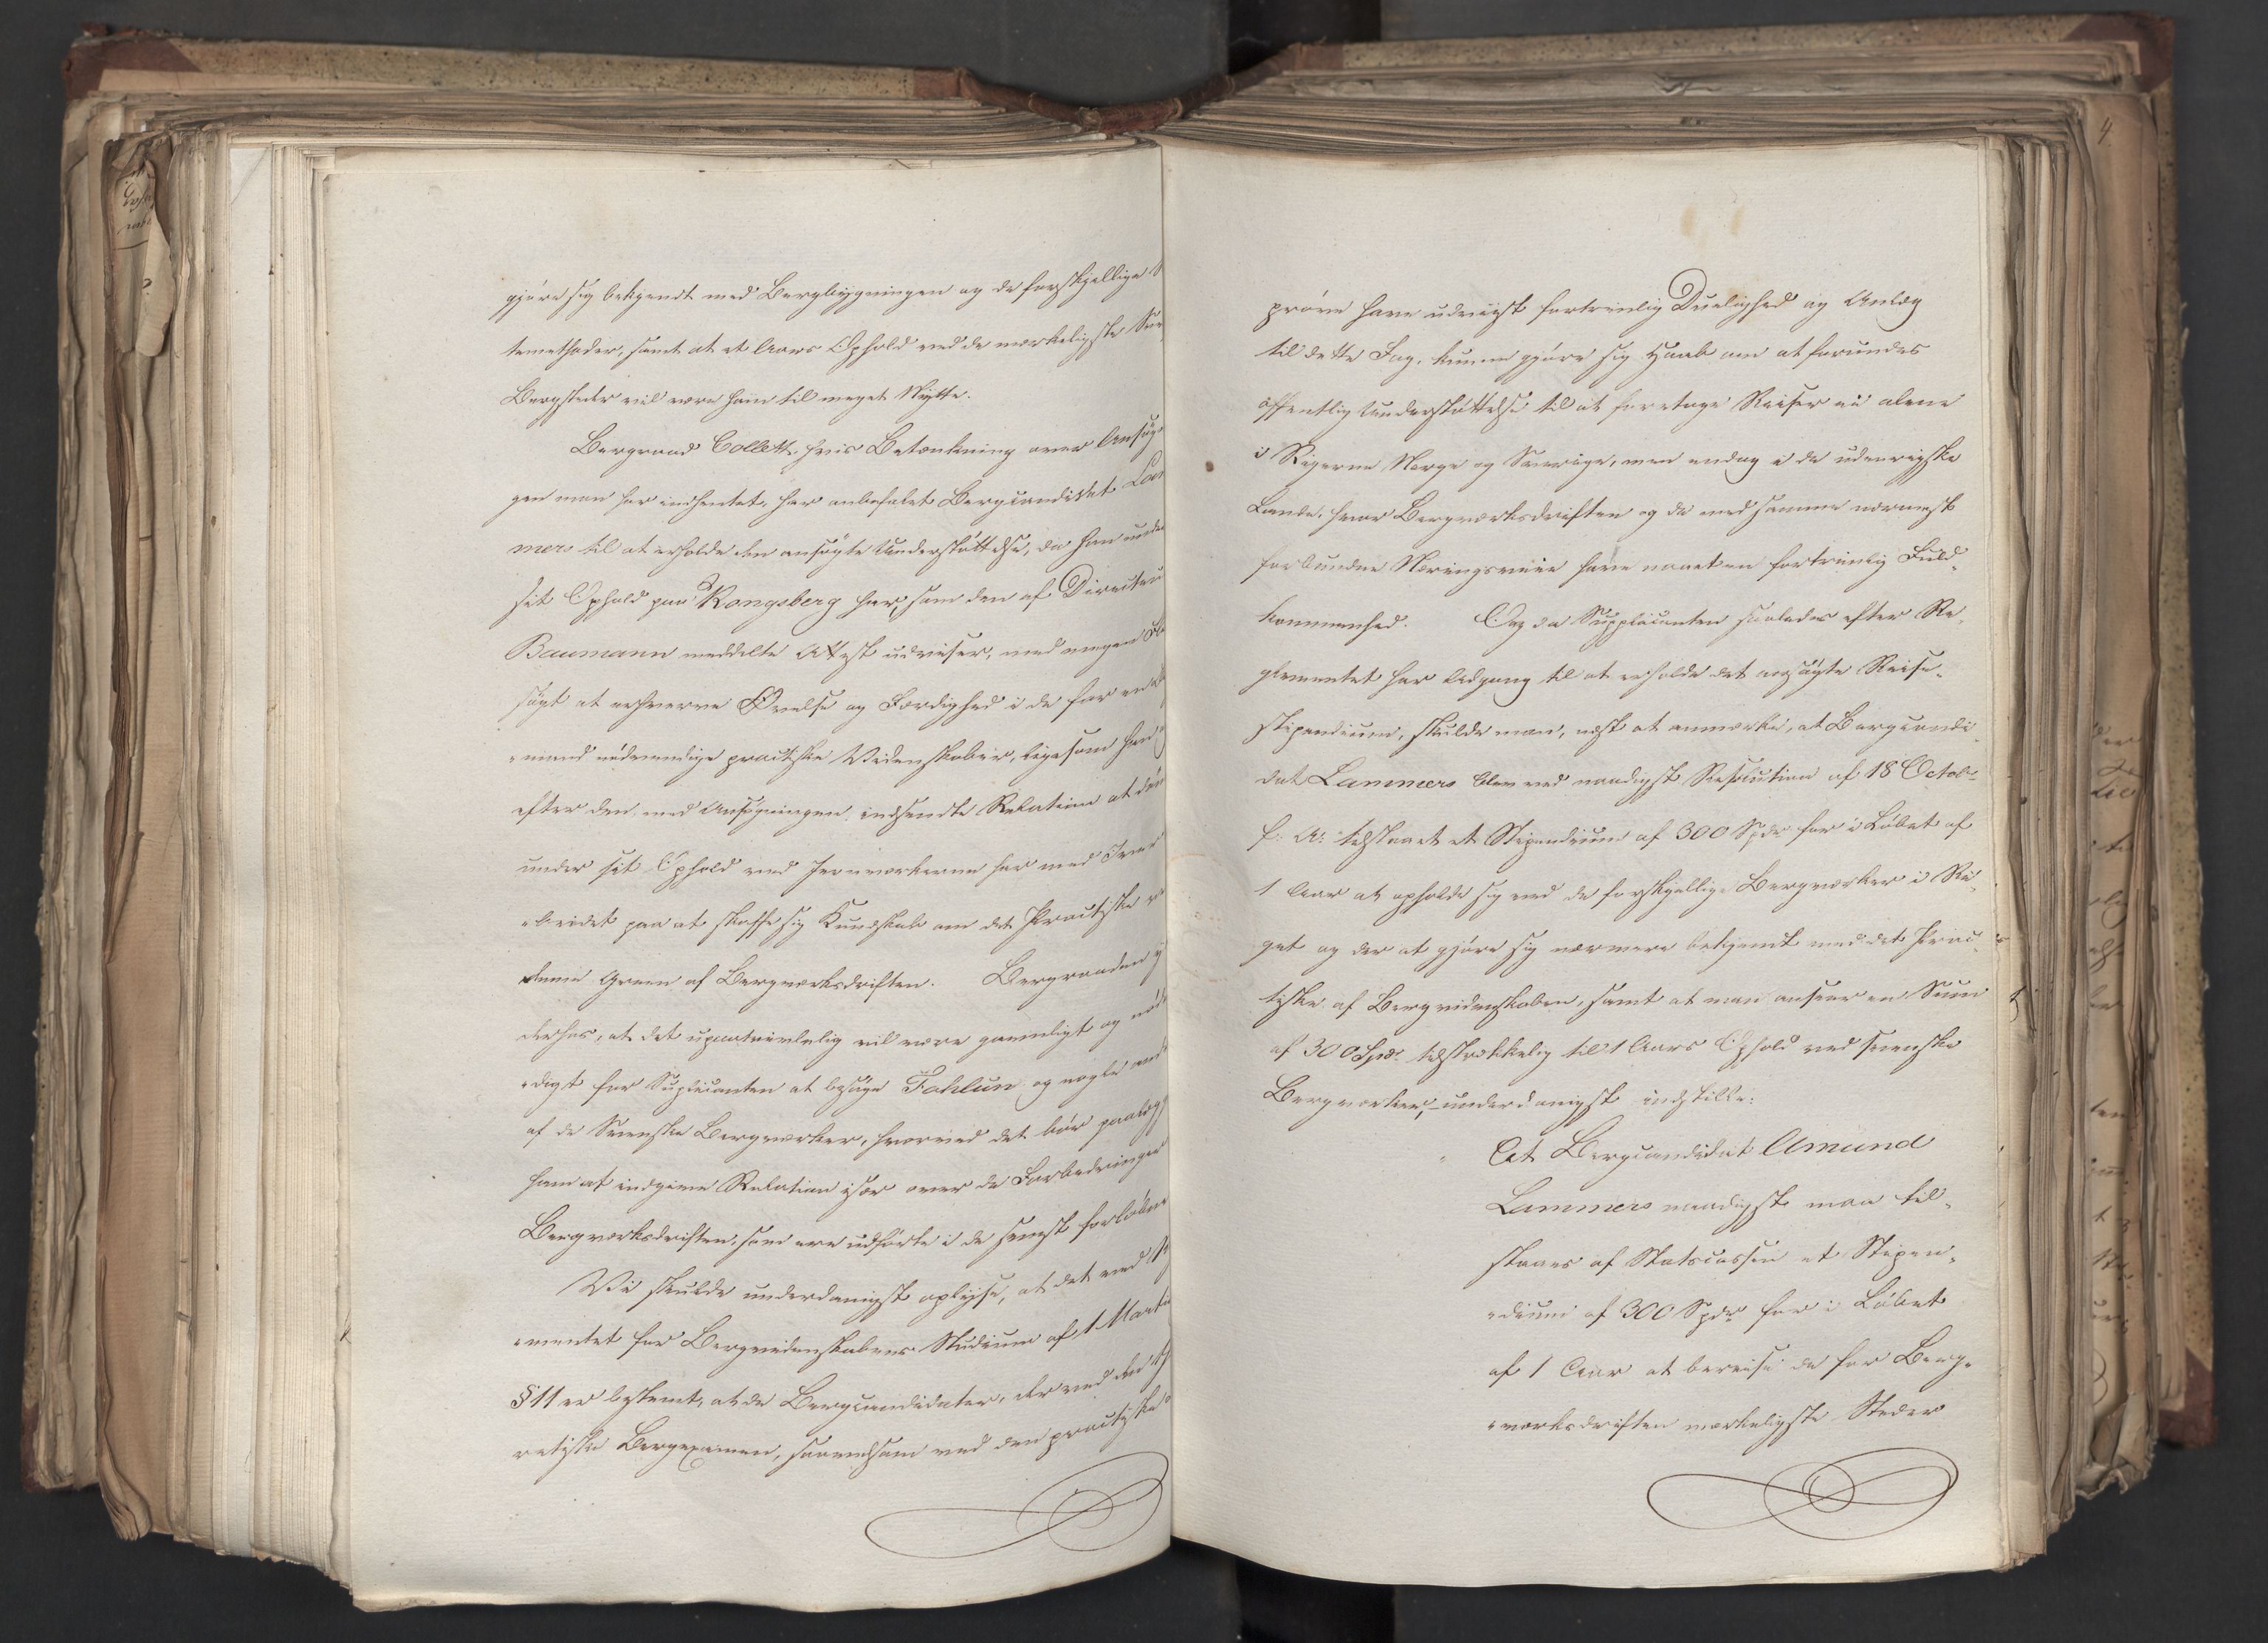 gjøre sig bekjendt med Bergbygningen og de forskjellige
temethoder, samt at et Aars Ophold ved de mærkeligste
Bergsteder vil være ham til meget Nytte.
Bergraad Collett, hvis Betænkning over Ansøg-
gen man har indhentet, har anbefalet Bergcandidat Lam
mers til at erholde den ansøgte Understøttelse, da han under
sit Ophold paa Kongsberg har, som den af Directeur
Baumann meddelte Attest udviser, med megen
søgt at erhverve Øvelse og Færdighed i de for en
-mand nødvendige practiske Videnskaber, ligesom han
efter den, med Ansøgningen, indsendte Relation at døm
under sit Ophold ved Jernværkerne har med Iver
-beidet paa at skaffe sig Kundskab om det Practiske
denne Green af Bergværksdriften. Bergraaden
derhos, at det upaatvivlelig vil være gavnligt og nød
-digt for Suplicanten at besøge Fahlun og nogle andre
af de Svenske Bergværker, hvorved det bør paalægg
ham at indgive Relation især over de Forbedringer
Bergværksdriften, som ere udførte i de senest forløbne
Vi skulde underdanigst oplyse, at det ved
-mentet for Bergvidenskabens Studium af 1 Marti
§ 11 er bestemt, at de Bergcandidater, der ved den
retiske Bergexamen, saavelsom ved den practiske
prøve have udviist fortrinlig Duelighed og Anlæg
til dette Fag, kunne gjøre sig Haab om at forundes
offentlig Understøttelse til at foretage Reiser ei alene
i Rigerne Norge og Sverrige, men endog i de udenrigske
Lande, hvor Bergværksdriften og de med samme nærmest
forbundne Næringsveie have naaet en fortrinlig Fuld-
kommenhed. Og da Supplicanten saaledes efter Re-
glementet har Adgang til at erholde det ansøgte Reise-
stipendium, skulde man, næst at anmærke, at Bergcandi-
dat Lammers blev ved naadigst Resolution af 18 Octobr
f: A: tilstaaet et Stipendium af 300 Spdr for i Løbet af
1 Aar at opholde sig ved de forskjellige Bergværker i Ri-
get og der at gjøre sig nærmere bekjendt med det Prac-
tiske af Bergvidenskaben, samt at man anseer en Sum
af 300 Spdr tilstrækkelig til 1 Aars Ophold ved svenske
Bergværker, - underdanigst indstille:
At Bergcandidat Amund
Lammers naadigst maa til-
staaes af Statscassen et Stipen-
-dium af 300 Spdr for i Løbet
af 1 Aar at bereise de for Berg-
-værksdriften mærkeligste Steder